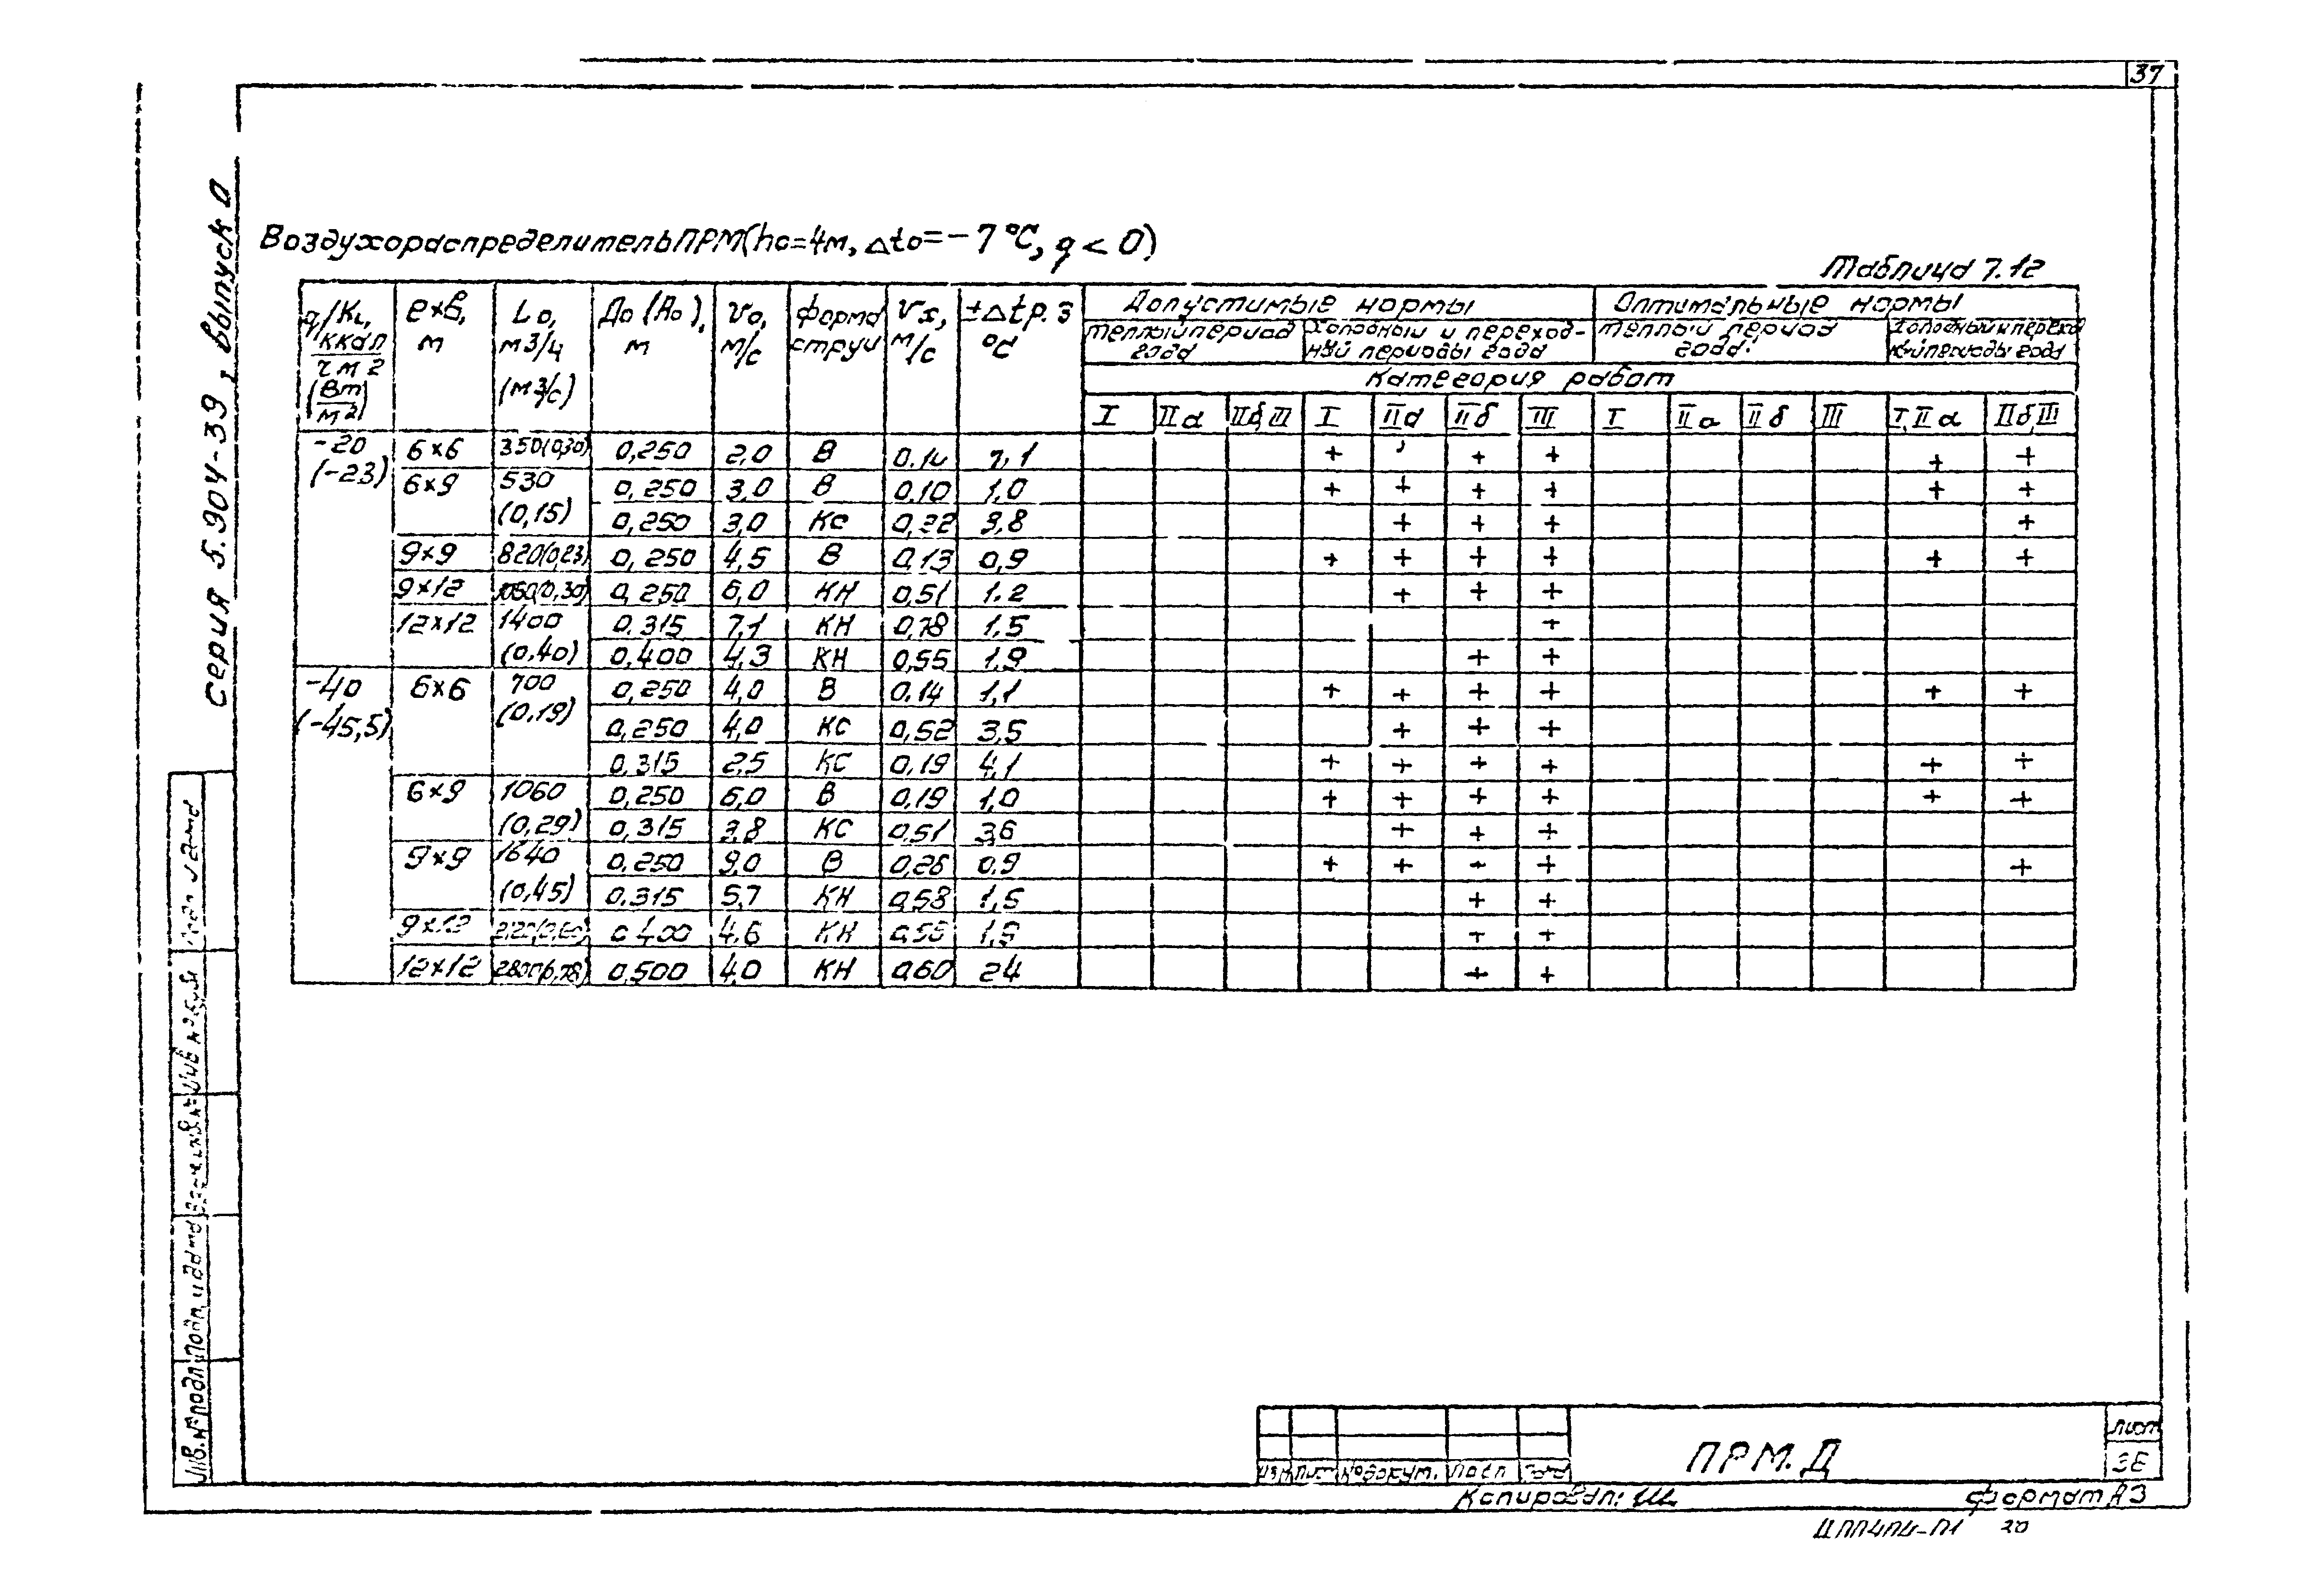 37
серия 5.904-39, выпуск 0
Воздухораспределитель ПРМ (hо=4м, Δtо=-7°С, q<0)
Таблица 7.12
q/KL, ккал/ч м2 (Вт/м2) | ℓ×в, м | Lо, м3/ч (м3/с) | До (Ао), м | vо, м/с | форма струи | vx, м/с | ±Δtр.з °С | Допустимые нормы | Оптимальные нормы
теплый период года | Холодный и переходный периоды года | теплый период года. | холодный и перехо
Категория работ
I | IIа | IIб, III | I | IIа | IIб | III | I | IIа | IIб | III | I, IIа | IIб, III
-20 (-23) | 6×6 | 350 | 0,250 | 2,0 | В | | 1,1 | + | | + | + | + | +
6×9 | 530 (0,15) | 0,250 | 3,0 | В | 0,10 | 1,0 | + | + | + | + | + | +
0,250 | 3,0 | КС | 0,22 | 3,8 | + | + | + | +
9×9 | 820(0,23) | 0,250 | 4,5 | В | 0,13 | 0,9 | + | + | + | + | + | +
9×12 | 1060(0,30) | 0,250 | 6,0 | КН | 0,51 | 1.2 | + | + | +
12×12 | 1400 (0,40) | 0.315 | 7,1 | КН | 0,78 | 1,5 | +
0,400 | 4,3 | КН | 0,55 | 1,9 | + | +
-40 (-45,5) | 6×6 | 700 (0,19) | 0,250 | 4,0 | В | 0.14 | 1,1 | + | + | + | + | + | +
0,250 | 4,0 | КС | 0,52 | 3,5 | + | + | +
0,315 | 2,5 | КС | 0,19 | 4,1 | + | + | + | + | + | +
6×9 | 1060 (0,29) | 0,250 | 6,0 | В | 0,19 | 1,0 | + | + | + | + | + | +
0,315 | 3,8 | КС | 0,51 | 3,6 | + | + | +
9×9 | 1640 (0,45) | 0,250 | 9,0 | В | 0,26 | 0,9 | + | + | + | + | +
0.315 | 5,7 | КН | 0,58 | 1,5 | + | +
9×12 | 0 400 | 4,6 | КН | | 1,9 | + | +
12×12 | 2800(0,78) | 0,500 | 4,0 | КН | 0,60 | 24 | + | +
Инв.№подл. Подп. и дата
ПРМ.Д
Лист
36
Изм Лист №докум. Подп Дата
Копировал:
формат А3
20